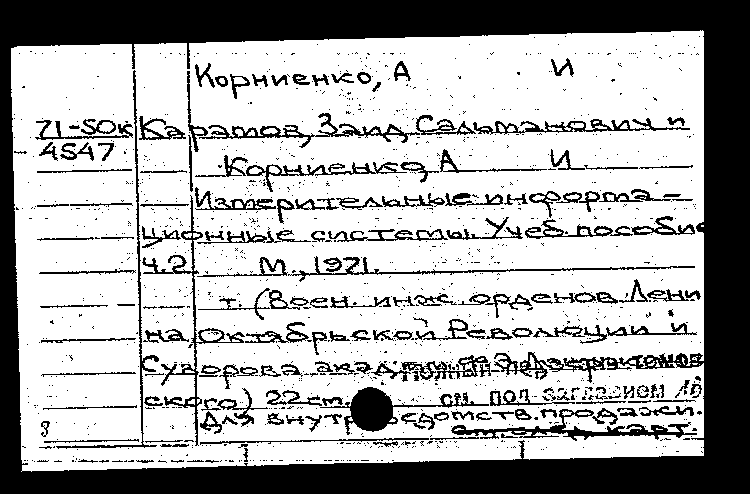 Корниенко, А И
71-5Ок Каратов, Заид Сальманович и
4547
Корниенко, А И.
Измерительные информа-
ционные системы. Учеб. пособие
Ч.2. М., 1971.
т. (Воен. инж. орденов Лени
на, Октябрьской Революции и
Суворова акад.
ского) 22 см. см. под заглавием
Для внутриведомств. продажи.
см. след. карт.
8